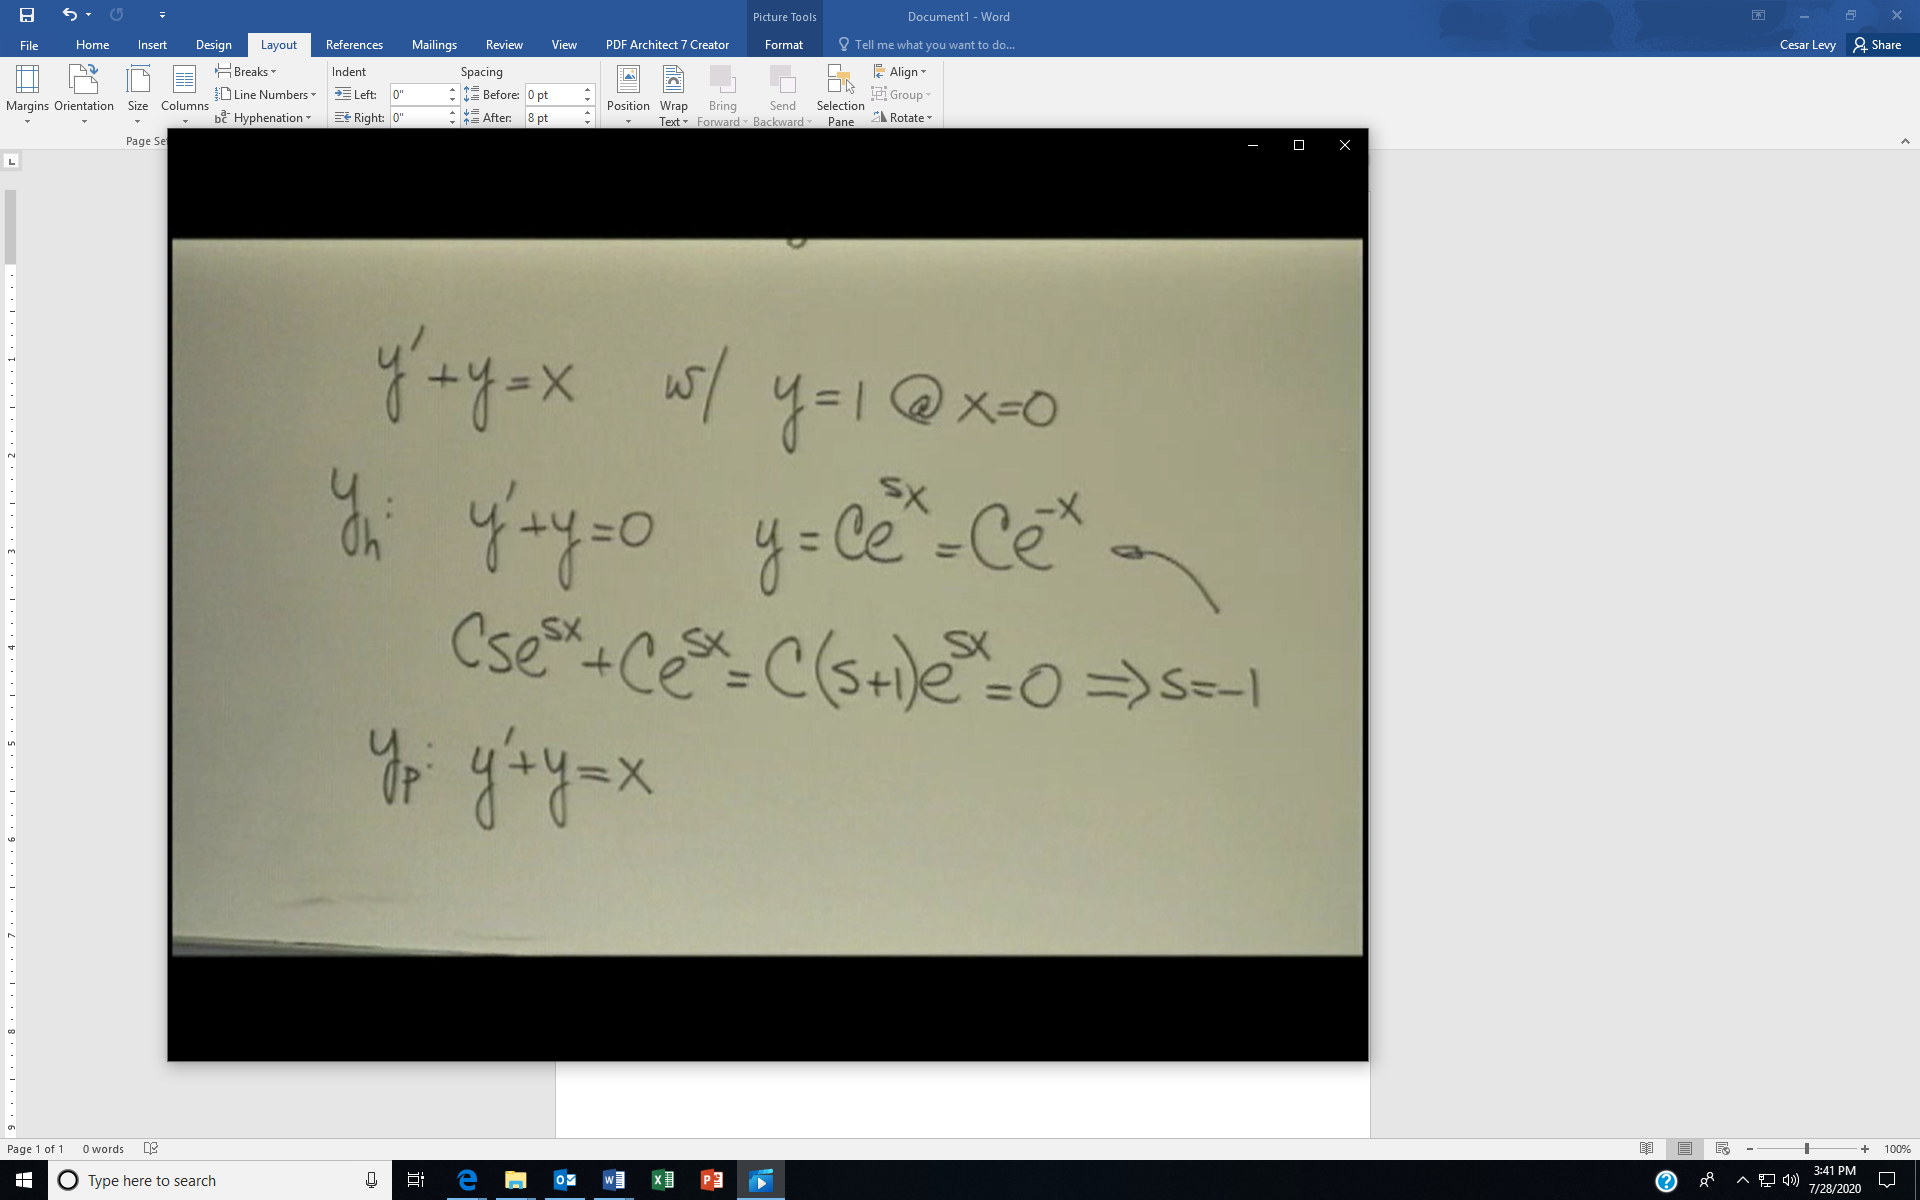 Picture Tools
Document1 - Word
File Home Insert Design Layout References Mailings Review View PDF Architect 7 Creator Format Tell me what you want to do... Cesar Levy Share
Margins Orientation Size Columns Breaks Line Numbers Hyphenation
Indent Spacing
Left: 0" Before: 0 pt
Right: 0" After: 8 pt
Position Wrap Text Bring Forward Send Backward Selection Pane Align Group Rotate
Page Se
y' + y = x w/ y = 1 @ x = 0
y_h: y' + y = 0 y = Ce^{sx} = Ce^{-x}
Cse^{sx} + Ce^{sx} = C(s+1)e^{sx} = 0 ⇒ s = -1
y_p: y' + y = x
1
2
3
4
5
6
7
8
9
Page 1 of 1 0 words 100%
Type here to search
3:41 PM
7/28/2020